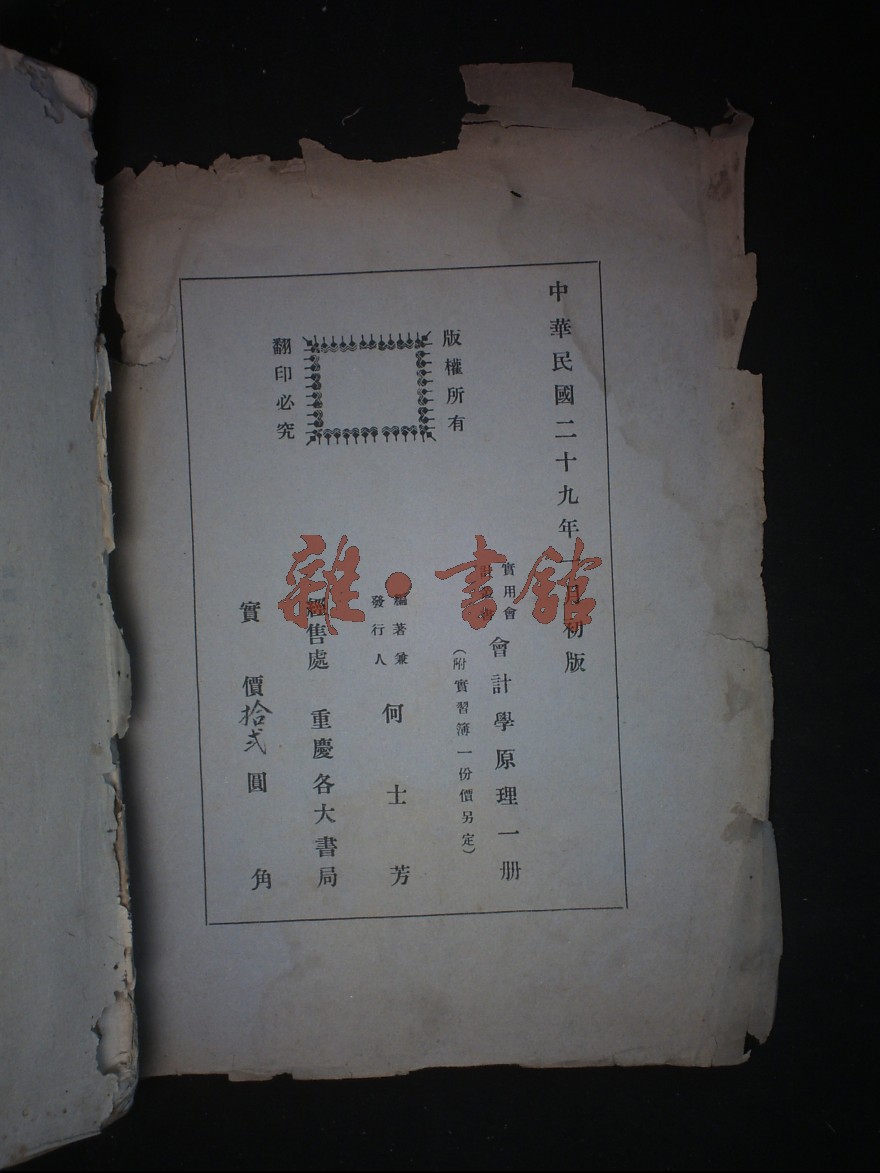 中華民國二十九年一月初版
實用會
計叢書
會計學原理一册
（附實習簿一份價另定）
版權所有
翻印必究
編著兼
發行人
何士芳
經售處 重慶各大書局
實價拾弍圓 角
雜·書館